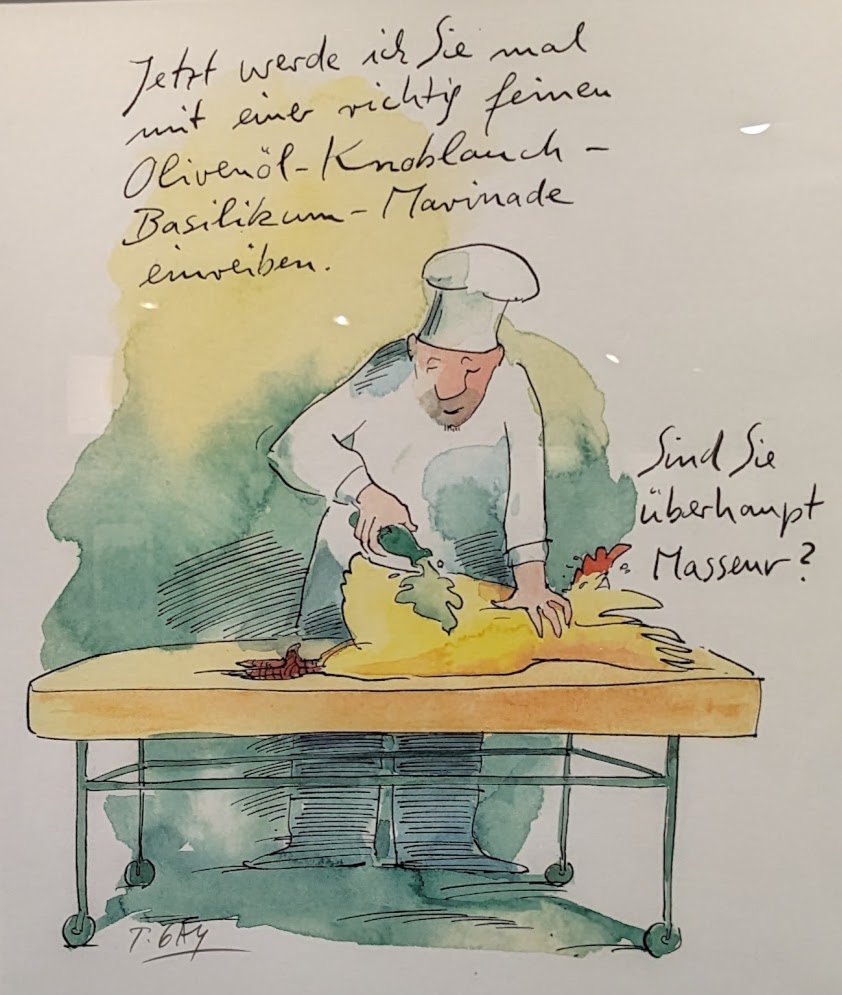 Jetzt werde ich Sie mal
mit einer richtig feinen
Olivenöl-Knoblauch-
Basilikum-Marinade
einreiben.
Sind Sie
überhaupt
Masseur?
T. GAY